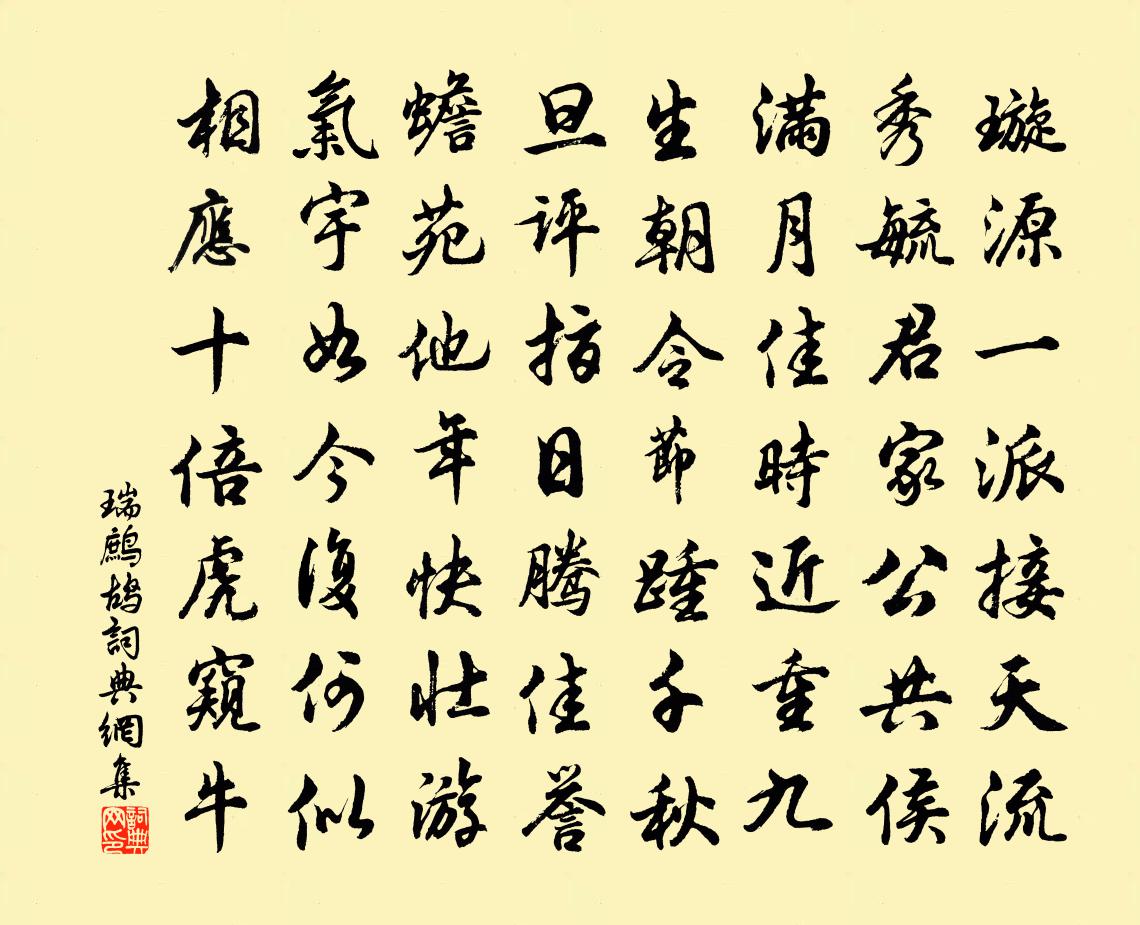 璇源一派接天流
秀毓君家公共侯
滿月佳時近重九
生朝令節踵千秋
旦評指日騰佳譽
蟾苑他年快壯游
氣宇如今復何似
相應十倍虎窺牛
瑞鷓鴣詞典網集
詞典網印